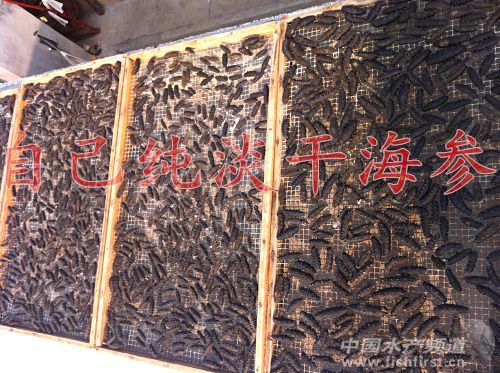 自己纯淡干海参
中国水产频道
www.fishfirst.cn